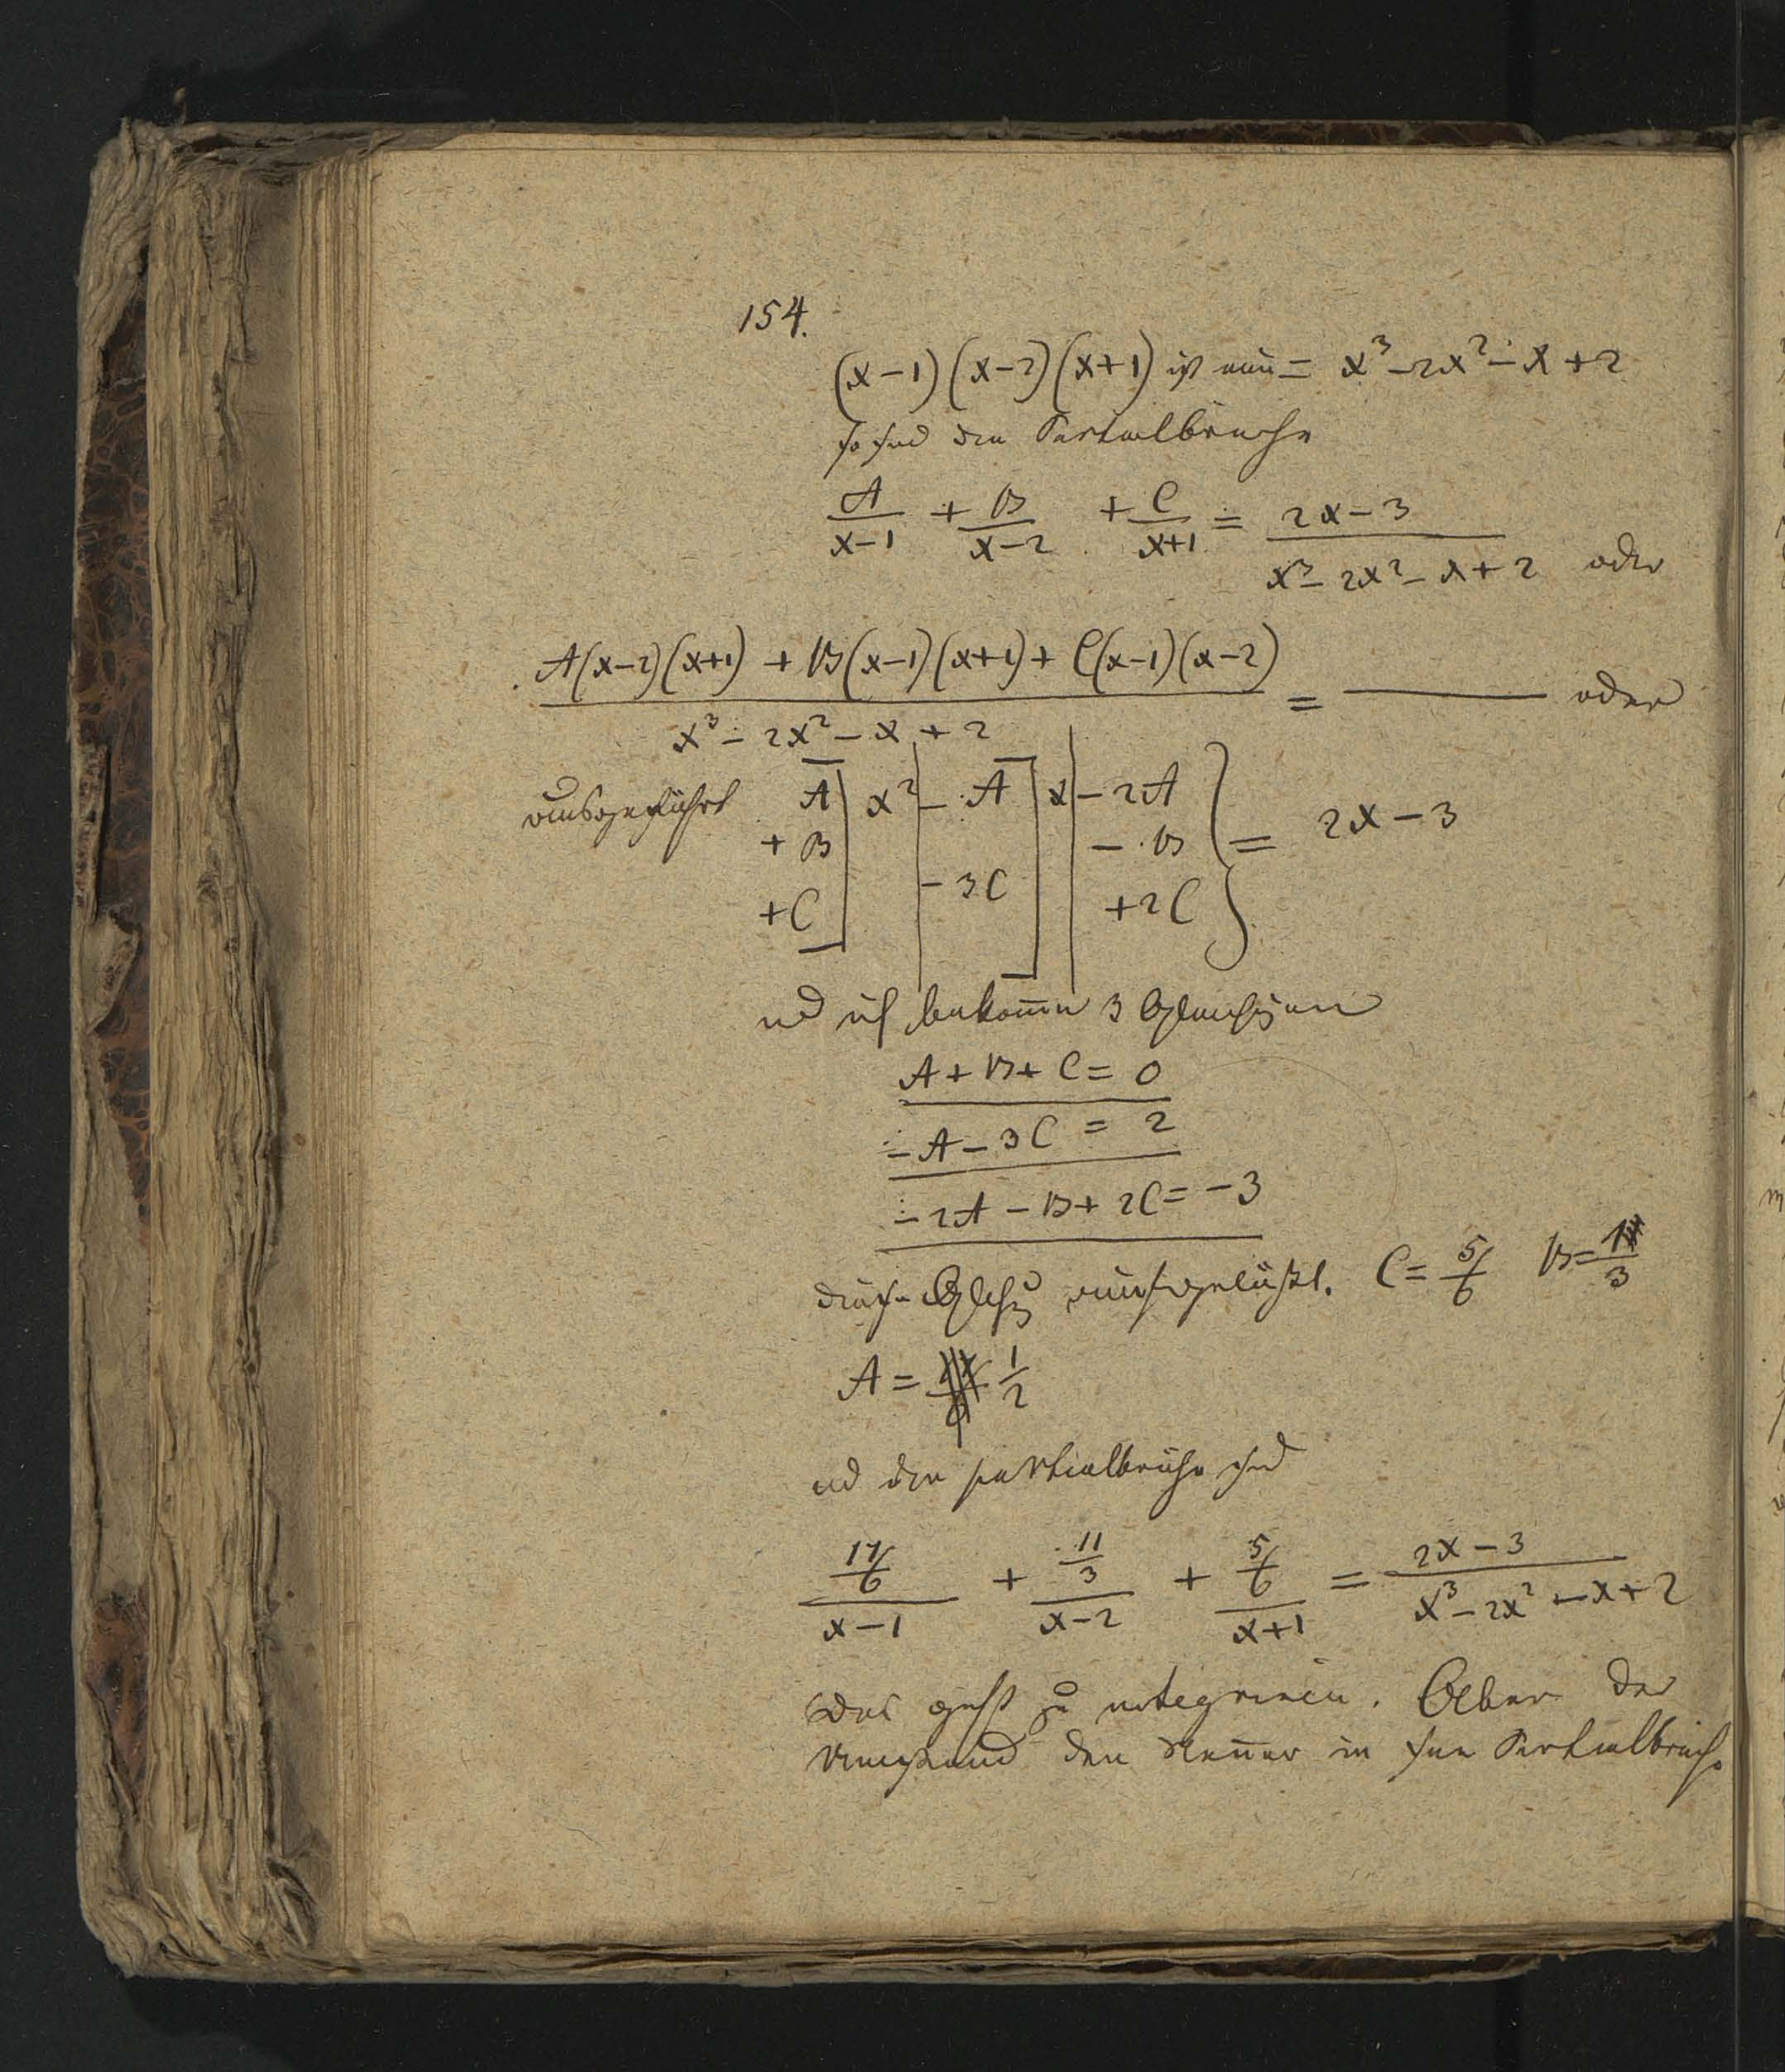 154.
(x-1)(x-2)(x+1) ist nun = x³-2x²-x+2
so sind die Partialbruche
A/x-1 + B/x-2 + C/x+1 = 2x-3/x³-2x²-x+2 oder
A(x-2)(x+1) + B(x-1)(x+1) + C(x-1)(x-2)/x³-2x²-x+2 = ——— oder
ausgeführt A] x² | - A] x | -2A } = 2x-3
+ B - B
+ C - 3C +2C
und ich bekomme 3 Gleichungen
A+B+C=0
-A-3C = 2
-2A-B+2C=-3
aufgelößt. C= 5/6 B= 1/3
A = 1/2
und die partialbrüche sind
17/6/x-1 + 11/3/x-2 + 5/6/x+1 = 2x-3/x³-2x²-x+2
Das geht zu integriren. Aber der
den Nenner in Partialbruche